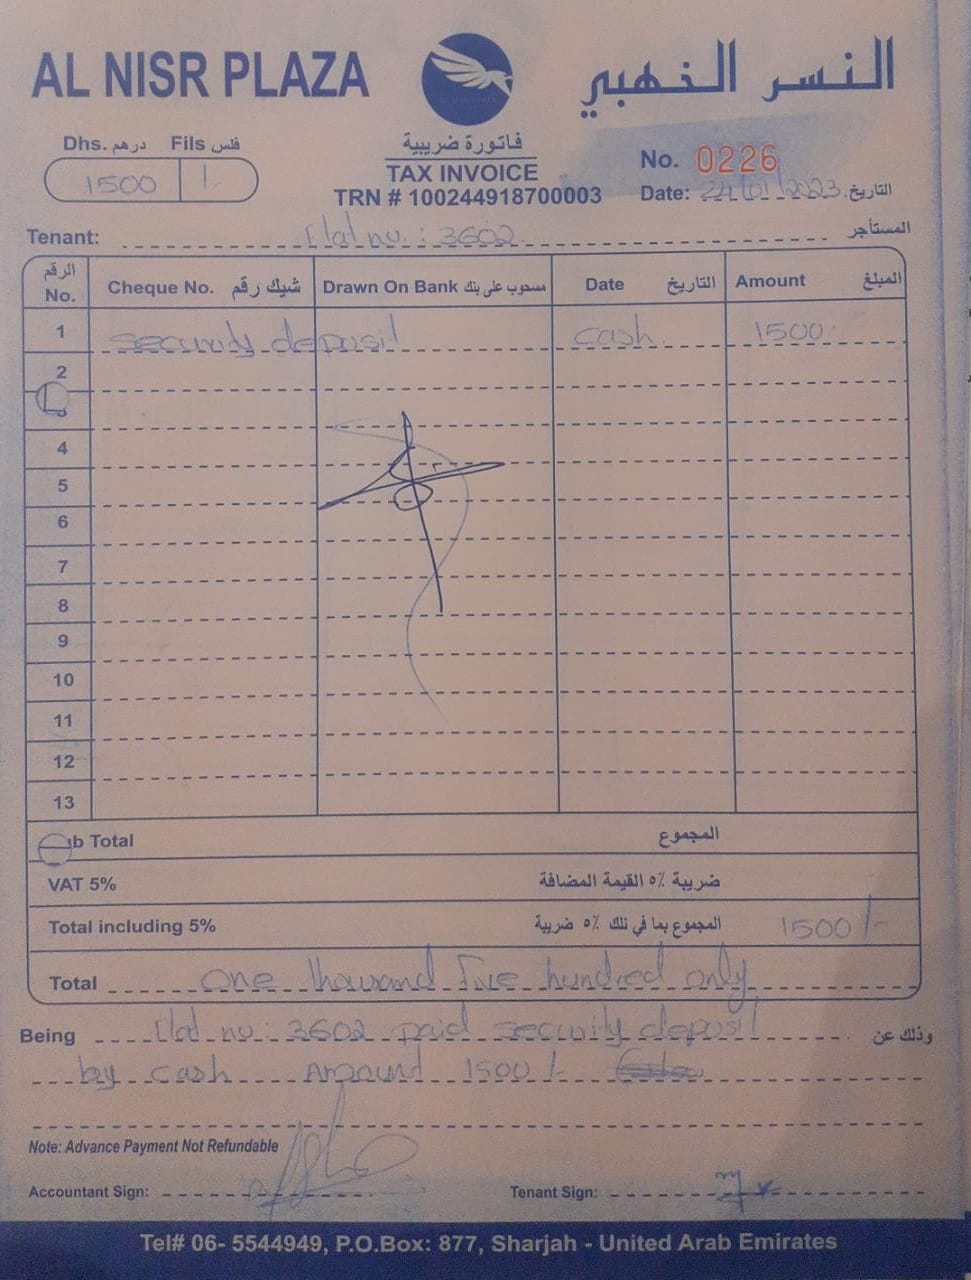 AL NISR PLAZA
النسر الخهبي
Dhs. درهم Fils فلس
1500 /-
فاتورة ضريبية
TAX INVOICE
TRN # 100244918700003
No. 0226
Date: 24/01/2023 التاريخ
Tenant: flat no.: 3602 المستأجر
الرقم No. Cheque No. شيك رقم Drawn On Bank مسحوب على بنك Date التاريخ Amount المبلغ
1 security deposit cash 1500
2
3
4
5
6
7
8
9
10
11
12
13
Sub Total المجموع
VAT 5% ضريبة ٥٪ القيمة المضافة
Total including 5% المجموع بما في ذلك ٥٪ ضريبة 1500/-
Total one thousand five hundred only
Being flat no: 3602 paid security deposit وذلك عن
by cash Amount 1500/-
Note: Advance Payment Not Refundable
Accountant Sign:
Tenant Sign:
Tel# 06- 5544949, P.O.Box: 877, Sharjah - United Arab Emirates